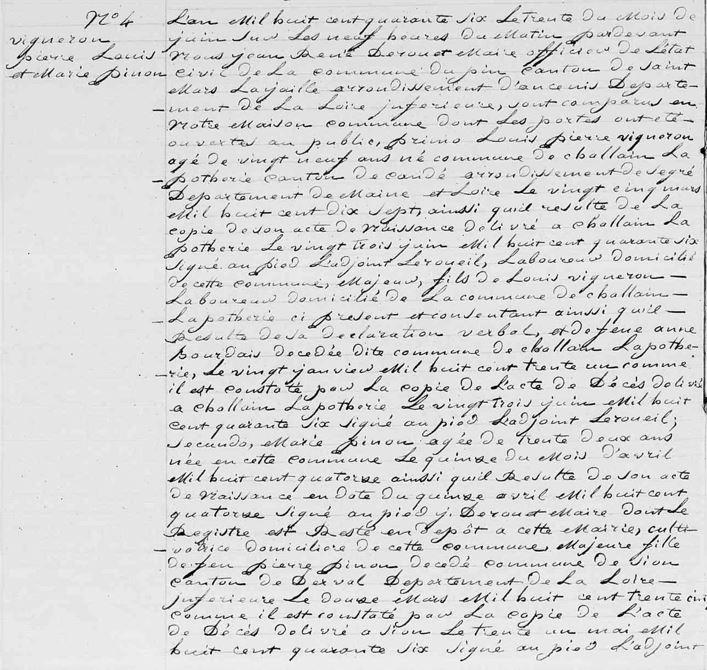 N° 4
vigneron
pierre Louis
et Marie pinon
L'an Mil huit cent quarante six Le trente du Mois de
juin sur Les neuf heures du Matin pardevant
Nous jean René Derouet Maire officier de L'état
civil de La commune du pin canton de saint
Mars Lajaille arrondissement d'ancenis Departe-
ment de La Loire inferieure, sont comparus en
Notre Maison commune dont Les portes ont été
ouvertes au public, primo Louis pierre vigneron
agé de vingt neuf ans né commune de challain La
potherie canton de candé arrondissement de segré
Departement de Maine et Loire Le vingt cinq mars
Mil huit cent dix sept, ainsi quil resulte de La
copie de son acte de Naissance délivré a challain La
potherie Le vingt trois juin Mil huit cent quarante six
signé au pied L'adjoint Leroueil, Laboureur domicilié
de cette commune, Majeur, fils de Louis vigneron
Laboureur domicilié de La commune de challain
La potherie ci present et consentant ainsi quil
Resulte de sa declaration verbal, et de feue anne
Bourdais decedée dite commune de challain Lapothe-
rie, Le vingt janvier Mil huit cent trente un comme
il est constaté par La copie de L'acte de Décès délivré
a challain Lapotherie Le vingt trois juin Mil huit
cent quarante six signé au pied L'adjoint Leroueil;
secundo, Marie pinon agée de trente deux ans
née en cette commune Le quinze du Mois d'avril
Mil huit cent quatorze ainssi quil Resulte de son acte
de Naissance en date du quinze avril Mil huit cent
quatorze signé au pied j. Derouet Maire dont Le
Registre est Resté en depôt a cette Mairie, culti-
vatrice domiciliere de cette commune, Majeure fille
de feu pierre pinon decedé commune de sion
canton de Derval Departement de La Loire
inferieure Le douze Mars Mil huit cent trente cinq
comme il est constaté par La copie de L'acte
de Décès délivré a sion Le trente un mai Mil
huit cent quarante six signé au pied L'adjoint